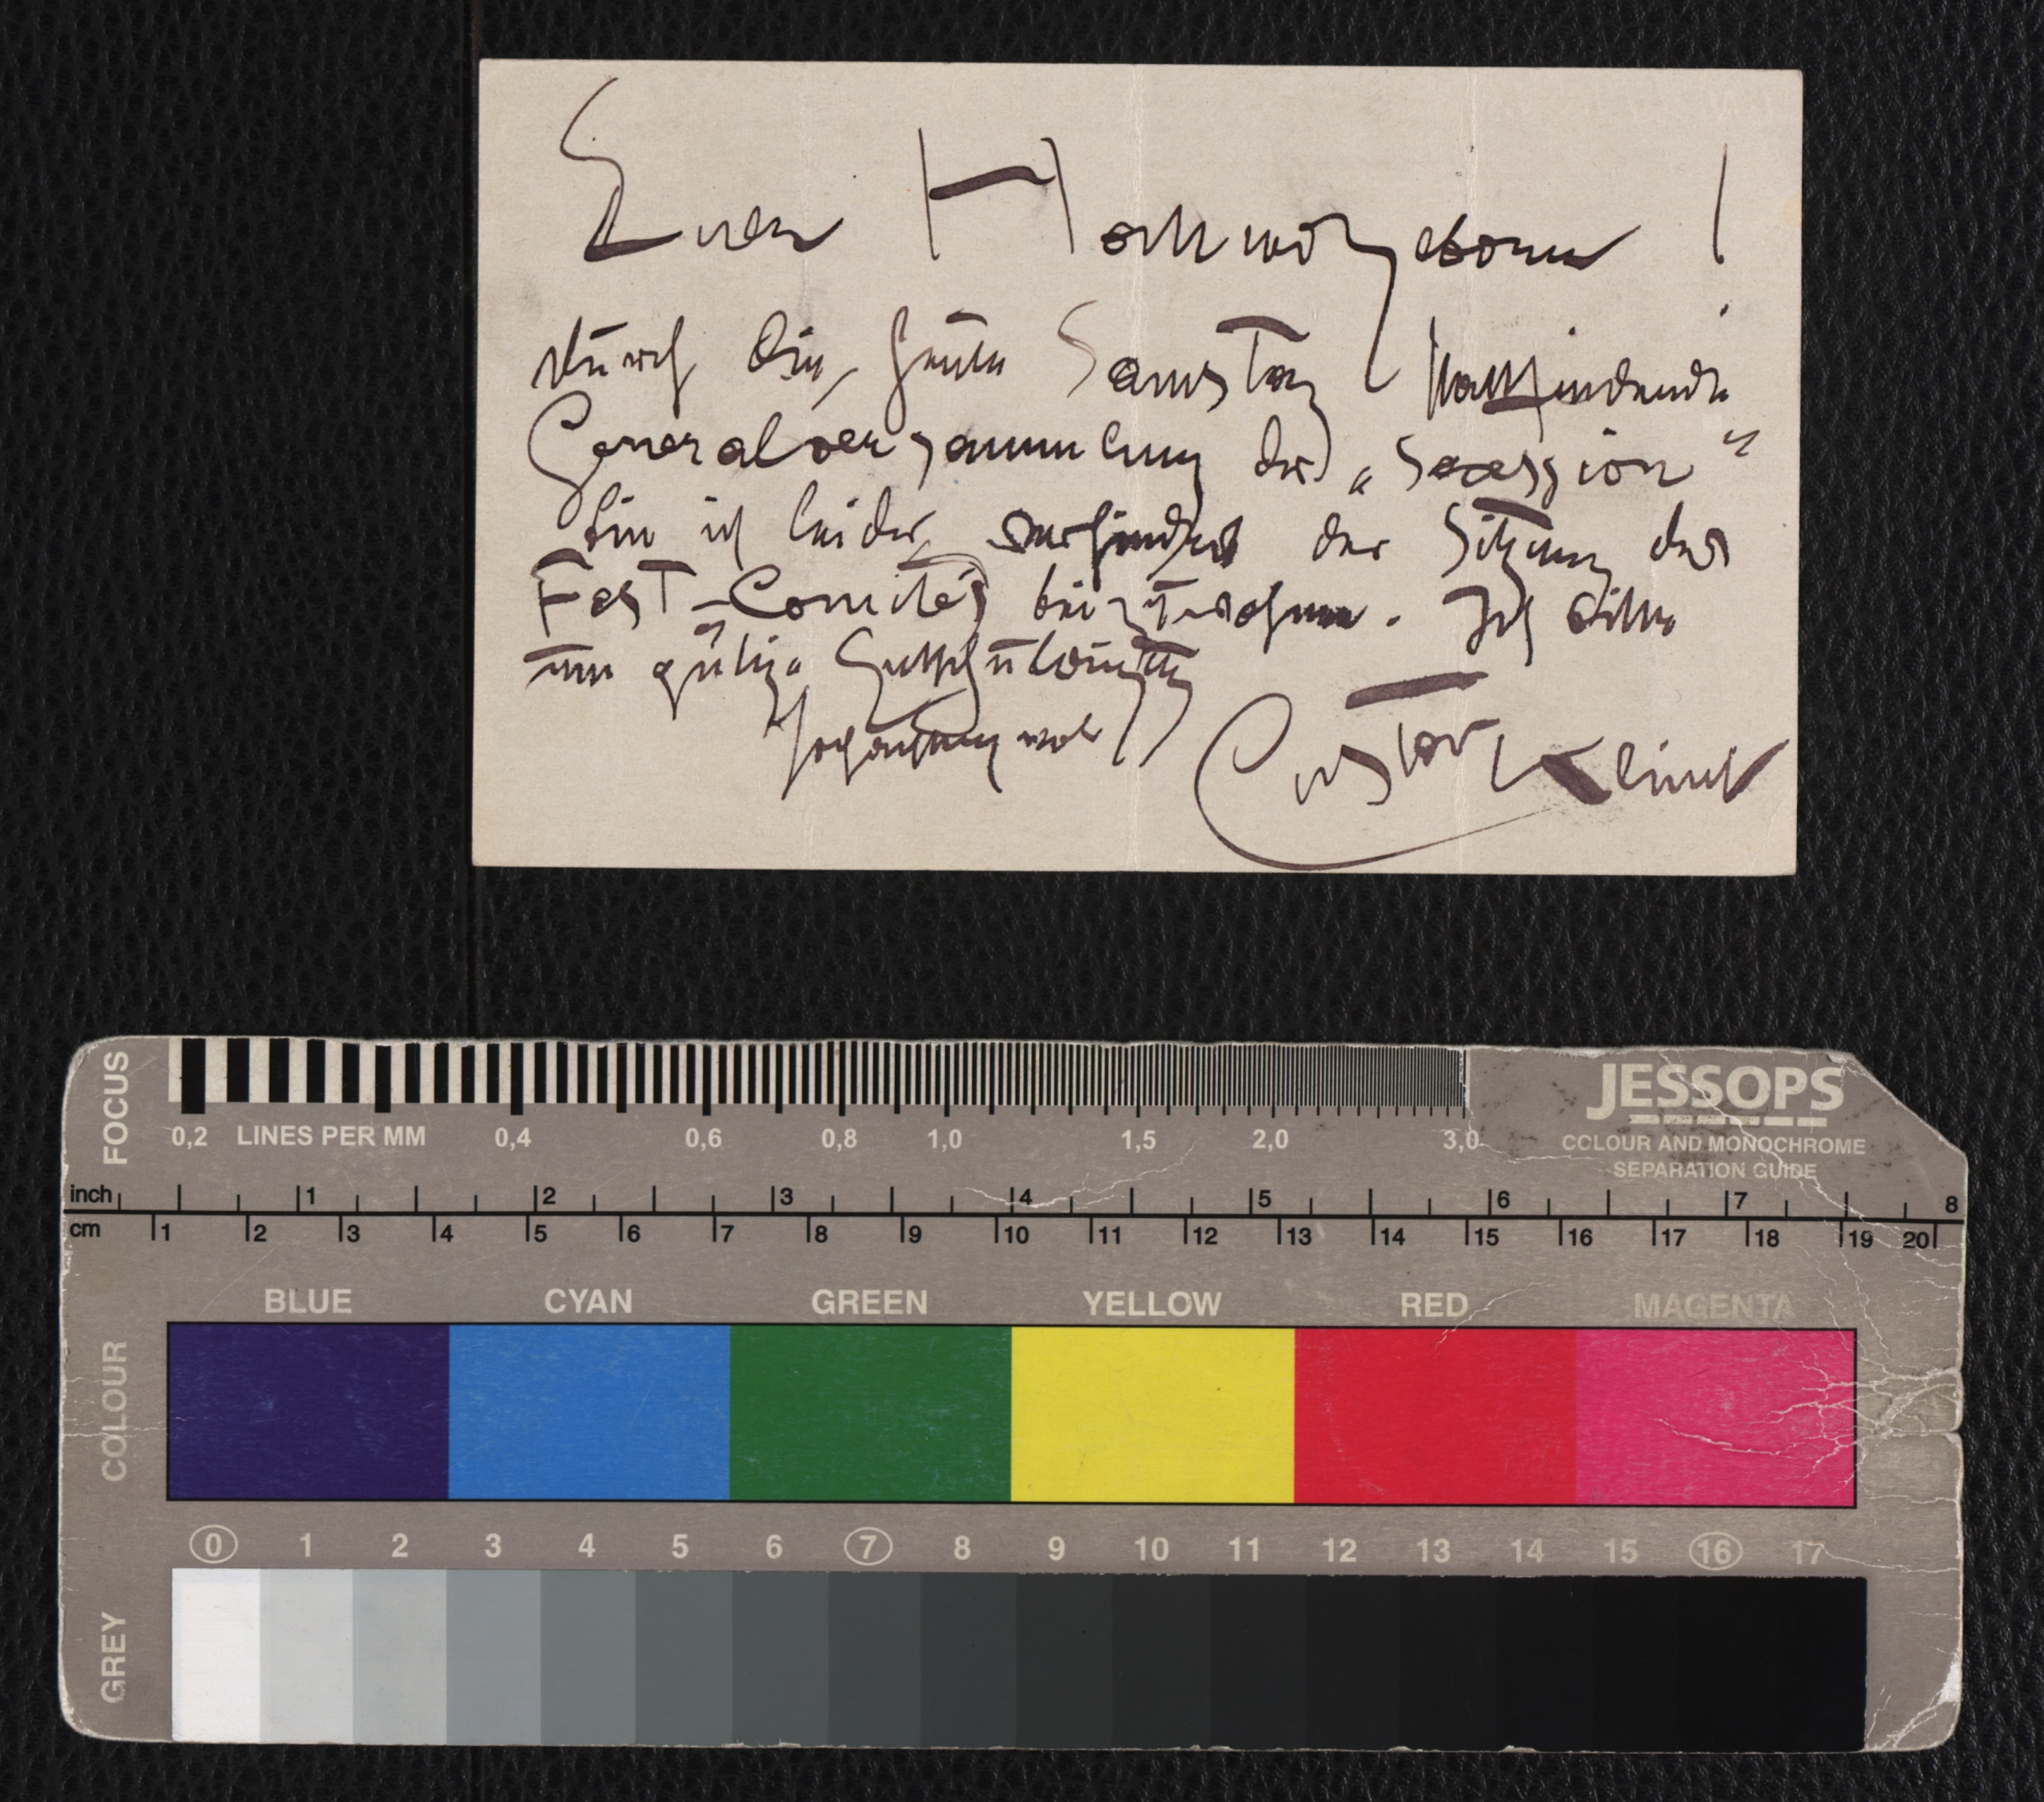 Euer Hochwolgeboren!
durch die, heute Samstag stattfindende
Generalversammlung der „Secession“
bin ich leider verhindert der Sitzung des
Fest-Comités beizuwohnen. Ich bitte
um gütige Entschuldigung
hochachtungsvoll
Gustav Klimt
FOCUS
JESSOPS
COLOUR AND MONOCHROME
SEPARATION GUIDE
0,2 LINES PER MM 0,4 0,6 0,8 1,0 1,5 2,0 3,0
inch 1 2 3 4 5 6 7 8
cm 1 2 3 4 5 6 7 8 9 10 11 12 13 14 15 16 17 18 19 20
BLUE CYAN GREEN YELLOW RED MAGENTA
COLOUR
0 1 2 3 4 5 6 7 8 9 10 11 12 13 14 15 16 17
GREY